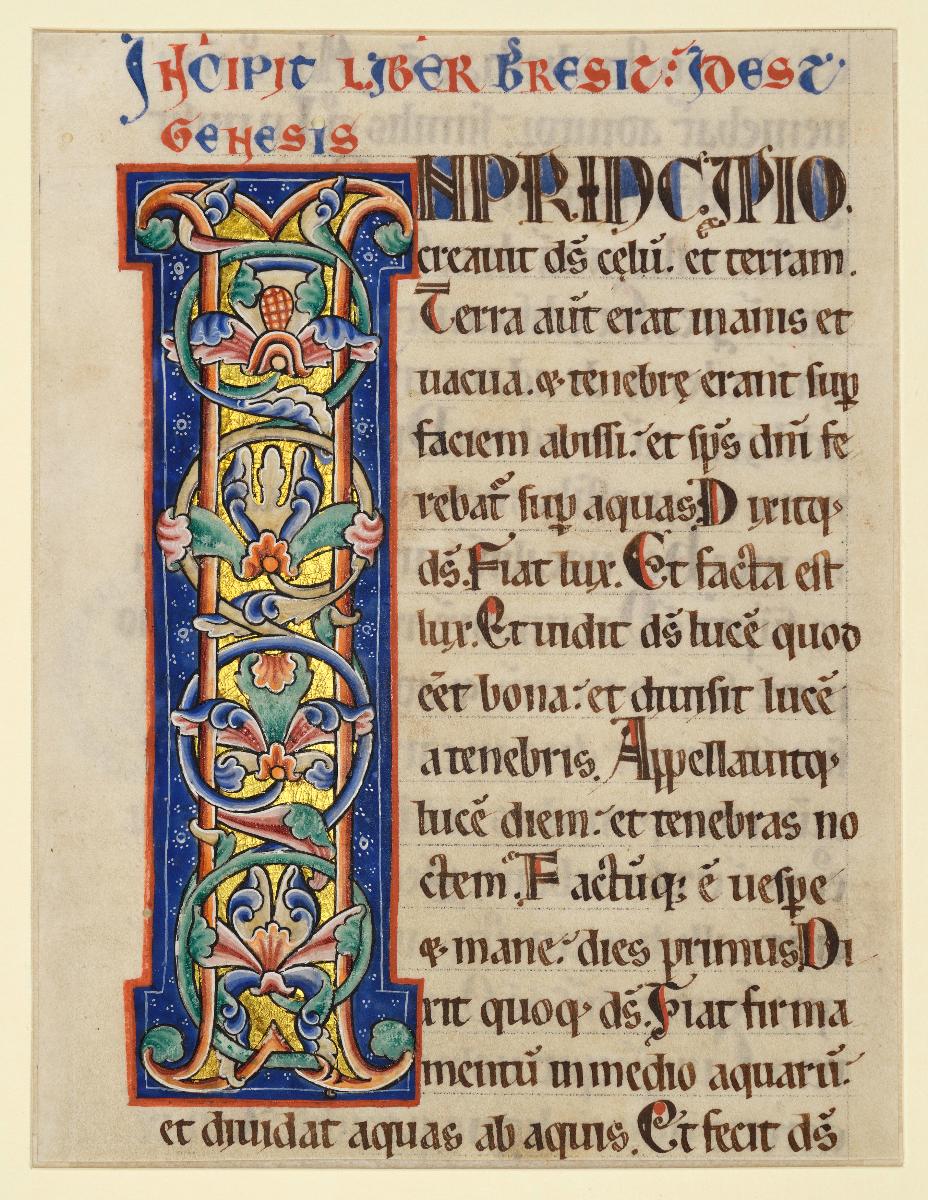 INCIPIT LIBER BRESIT: IDEST
GENESIS
IN PRINCIPIO.
creauit d̄s cęlū. et terram.
Terra aūt erat inanis et
uacua. & tenebrę erant sup̱
faciem abissi. et sp̄s dn̄i fe
rebat᷑ sup̱ aquas. Dixitq;
d̄s. Fiat lux. Et facta est
lux. Et uidit d̄s lucē quod
eēt bona. et diuisit lucē
a tenebris. Appellauitq;
lucē diem. et tenebras no
ctem. Factūq; ē uesp̱e
& mane. dies primus. Di
xit quoq; d̄s. Fiat firma
mentū in medio aquarū.
et diuidat aquas ab aquis. Et fecit d̄s